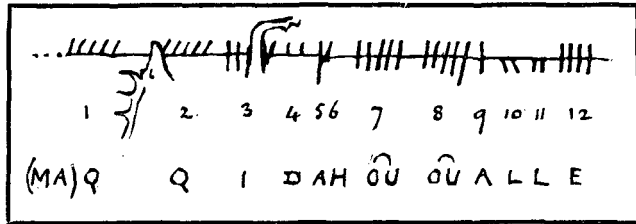 1 2 3 4 5 6 7 8 9 10 11 12
(MA) Q Q I D A H O U O U A L L E